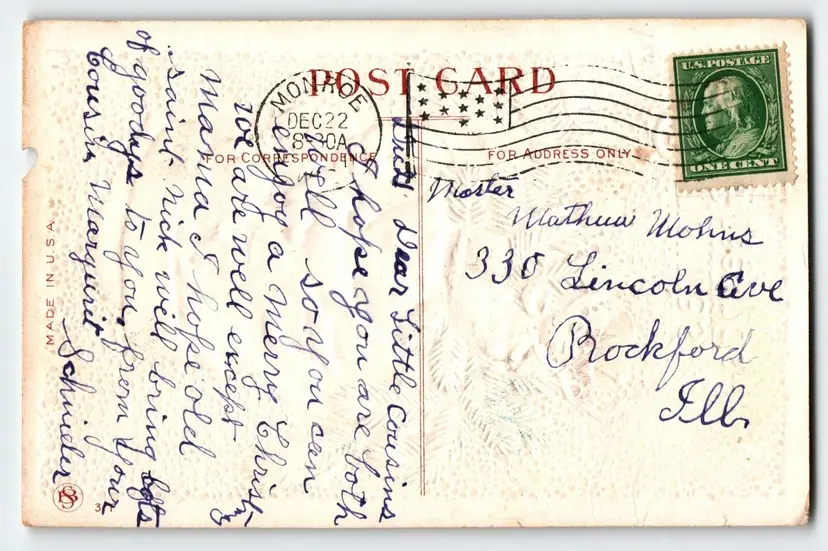 POST CARD
MONROE
DEC 22
8 30A
U.S. POSTAGE
ONE CENT
FOR CORRESPONDENCE
FOR ADDRESS ONLY
MADE IN U.S.A.
Dear Little Cousins
I hope you are both
well so you can
enjoy a Merry Christ
we are well except
Mama I hope old
saint Nick will bring lots
of goodys to you, from your
Cousin Margurit
Schnider
Master
Mathew Mohns
330 Lincoln Ave
Rockford
Ill.